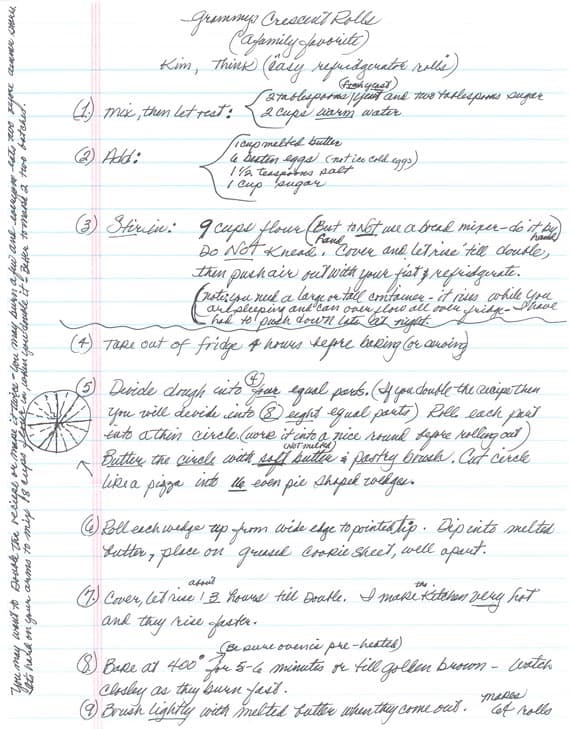 Grammys Crescent Rolls
(a family favorite)
Kim, Think (easy refridgerator rolls)
(1.) Mix, then let rest: (Fresh yeast)
2 tablespoons yeast and two tablespoons sugar
2 cups warm water
(2) Add:
1 cup melted butter
6 beaten eggs (not ice cold eggs)
1 1/2 teaspoons salt
1 cup sugar
(3) Stir in: 9 cups flour (But to Not use a bread mixer - do it by hand)
Do Not Knead. Cover and let rise 'till double,
then push air out with your fist & refridgerate.
(note: you need a large or tall container - it rises while you
are sleeping and can overflow all over fridge - I have
had to push down late at night.
(4) Take out of fridge 4 hours before baking (or serving)
(5) Divide dough into (4) four equal parts. (If you double the recipe then
you will divide into (8) eight equal parts) Roll each part
into a thin circle. (work it into a nice round before rolling out)
Butter the circle with soft butter (not melted) & pastry brush. Cut circle
like a pizza into 16 even pie shaped wedges.
(6) Roll each wedge up from wide edge to pointed tip. Dip into melted
butter, place on greased cookie sheet, well apart.
(7.) Cover, let rise about 3 hours till double. I make the kitchen very hot
and they rise faster.
(Be sure oven is pre-heated)
(8) Bake at 400° for 5-6 minutes or till golden brown - watch
closley as they burn fast.
(9) Brush lightly with melted butter when they come out. makes
64 rolls
You may want to double the recipe or make it twice - you may burn a few and everyone eats two before dinner
Lets hard on your arms to mix 18 cups flour in when you double it - Better to make 2 two batches!